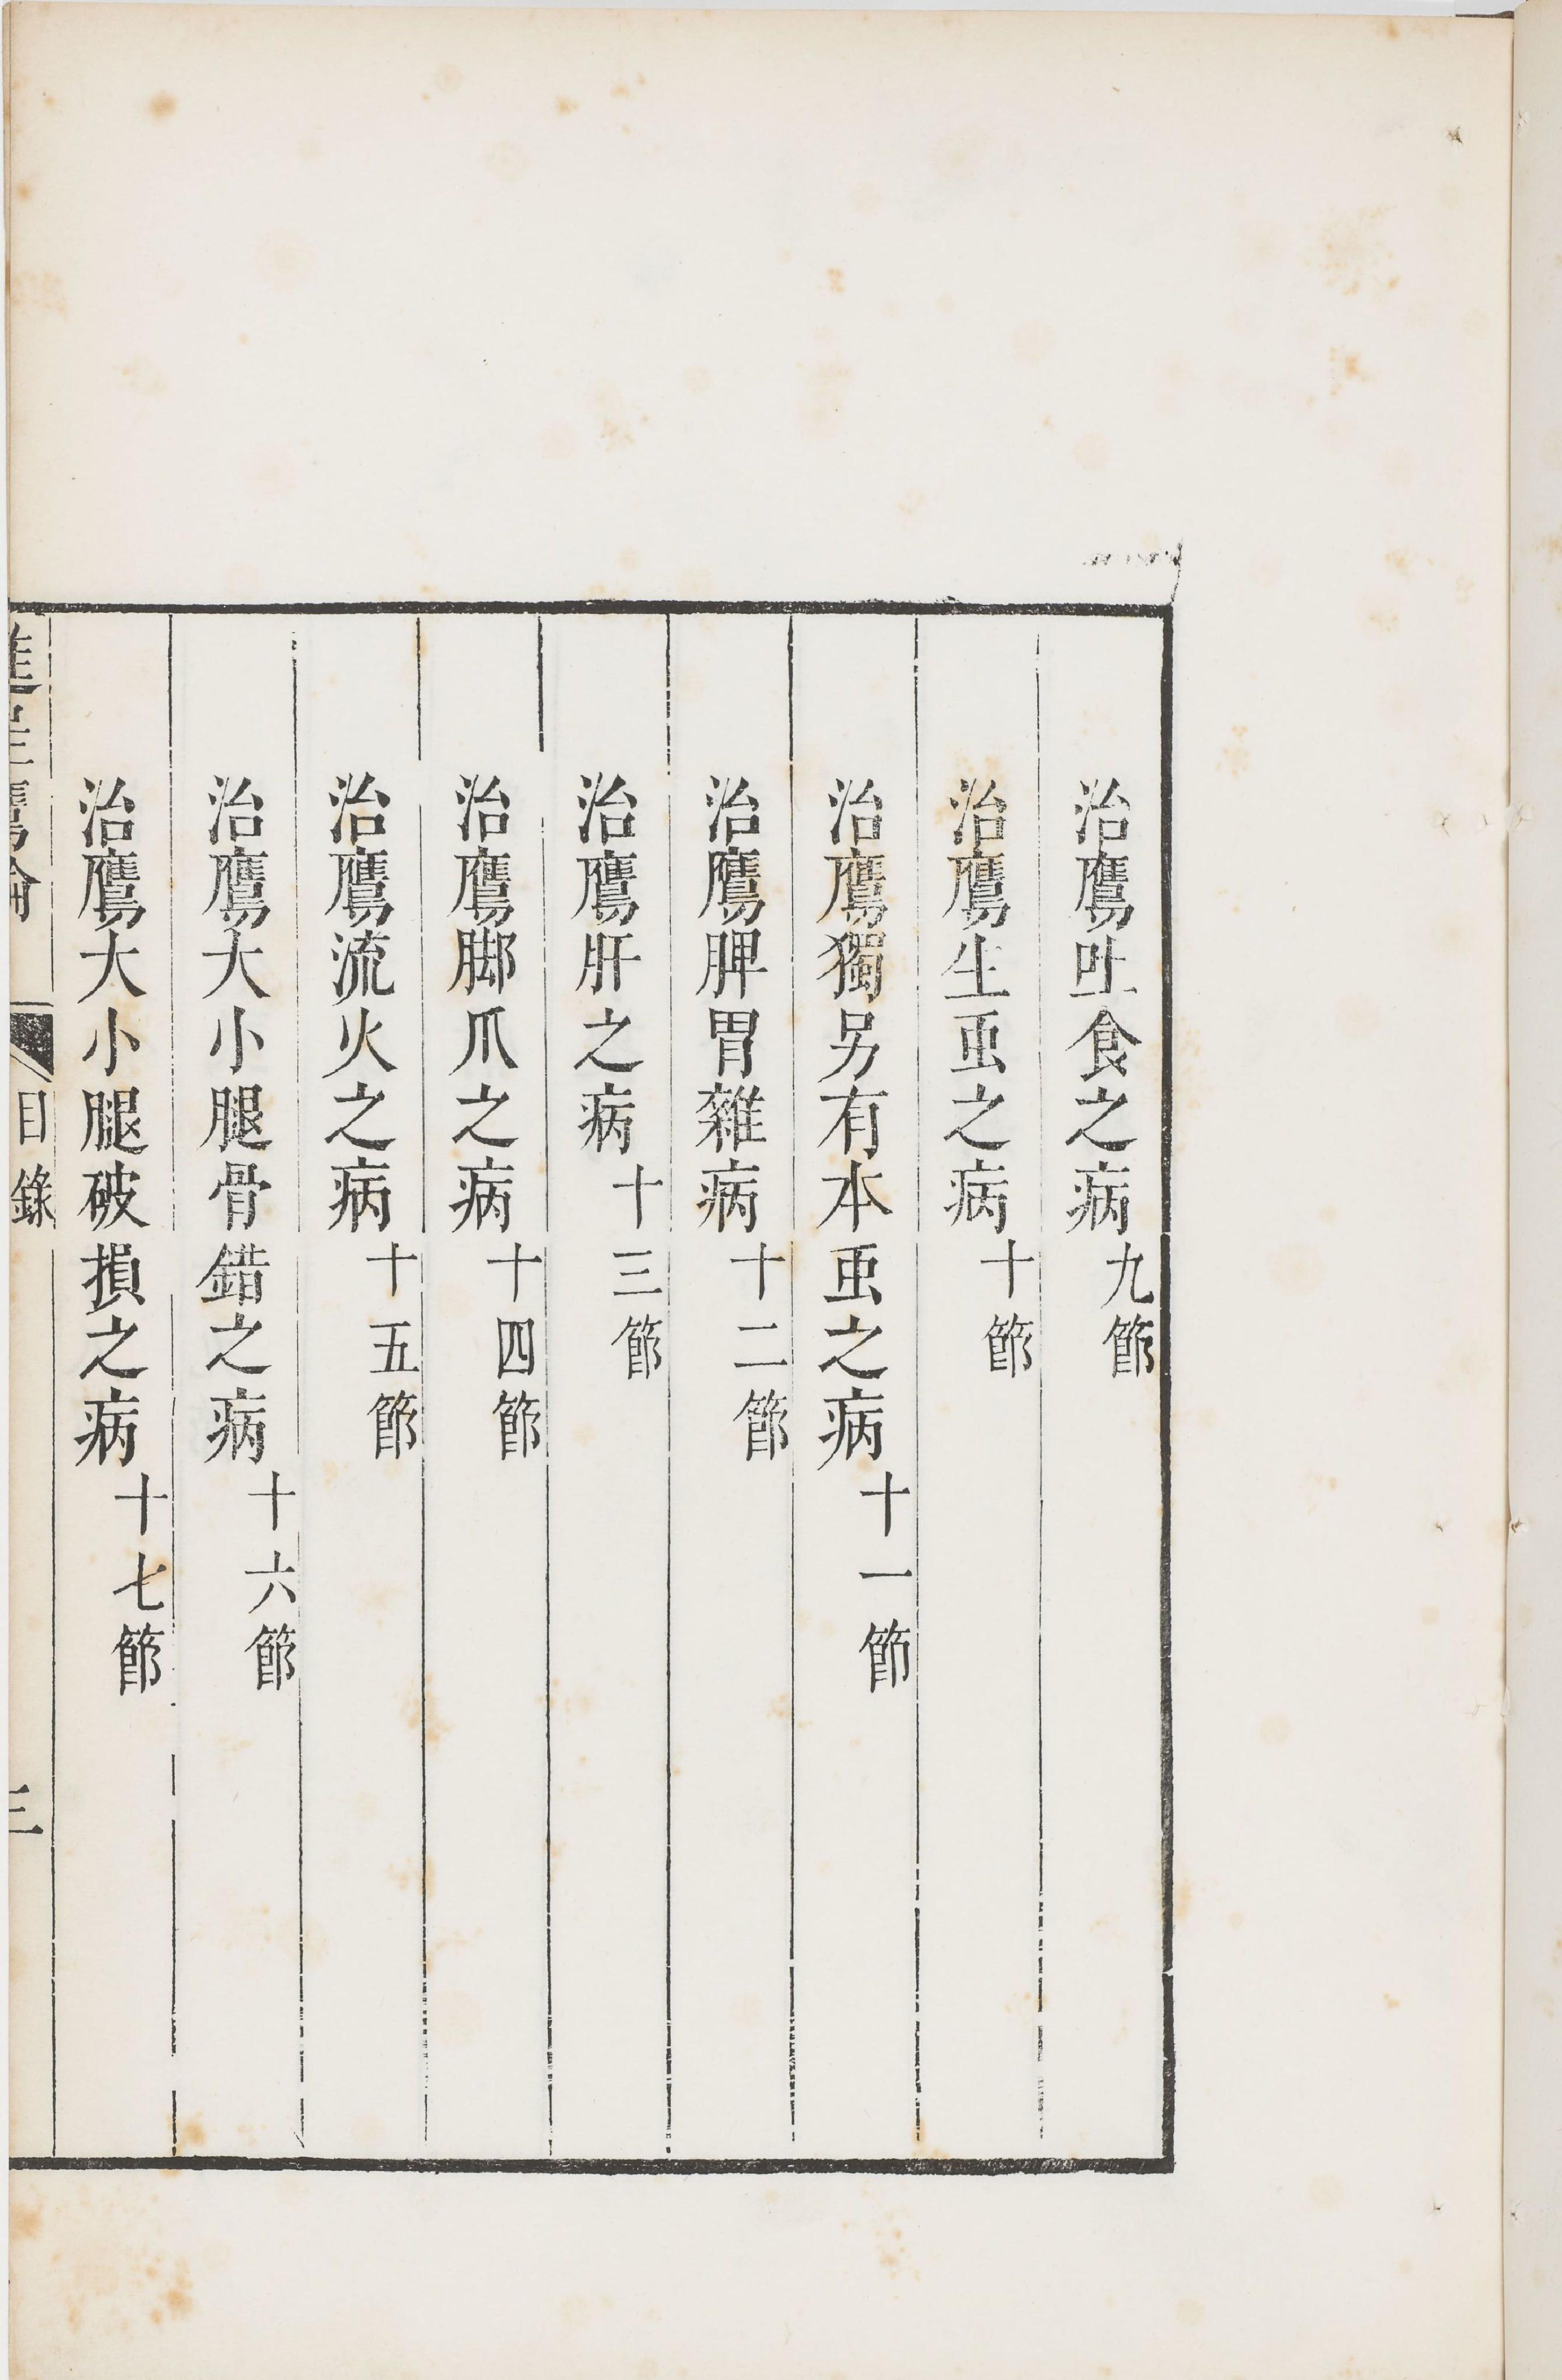 治鷹吐食之病九節
治鷹生䖝之病十節
治鷹獨另有本䖝之病十一節
治鷹脾胃雜病十二節
治鷹肝之病十三節
治鷹脚爪之病十四節
治鷹流火之病十五節
治鷹大小腿骨錯之病十六節
治鷹大小腿破損之病十七節
進呈鷹論 目錄 三